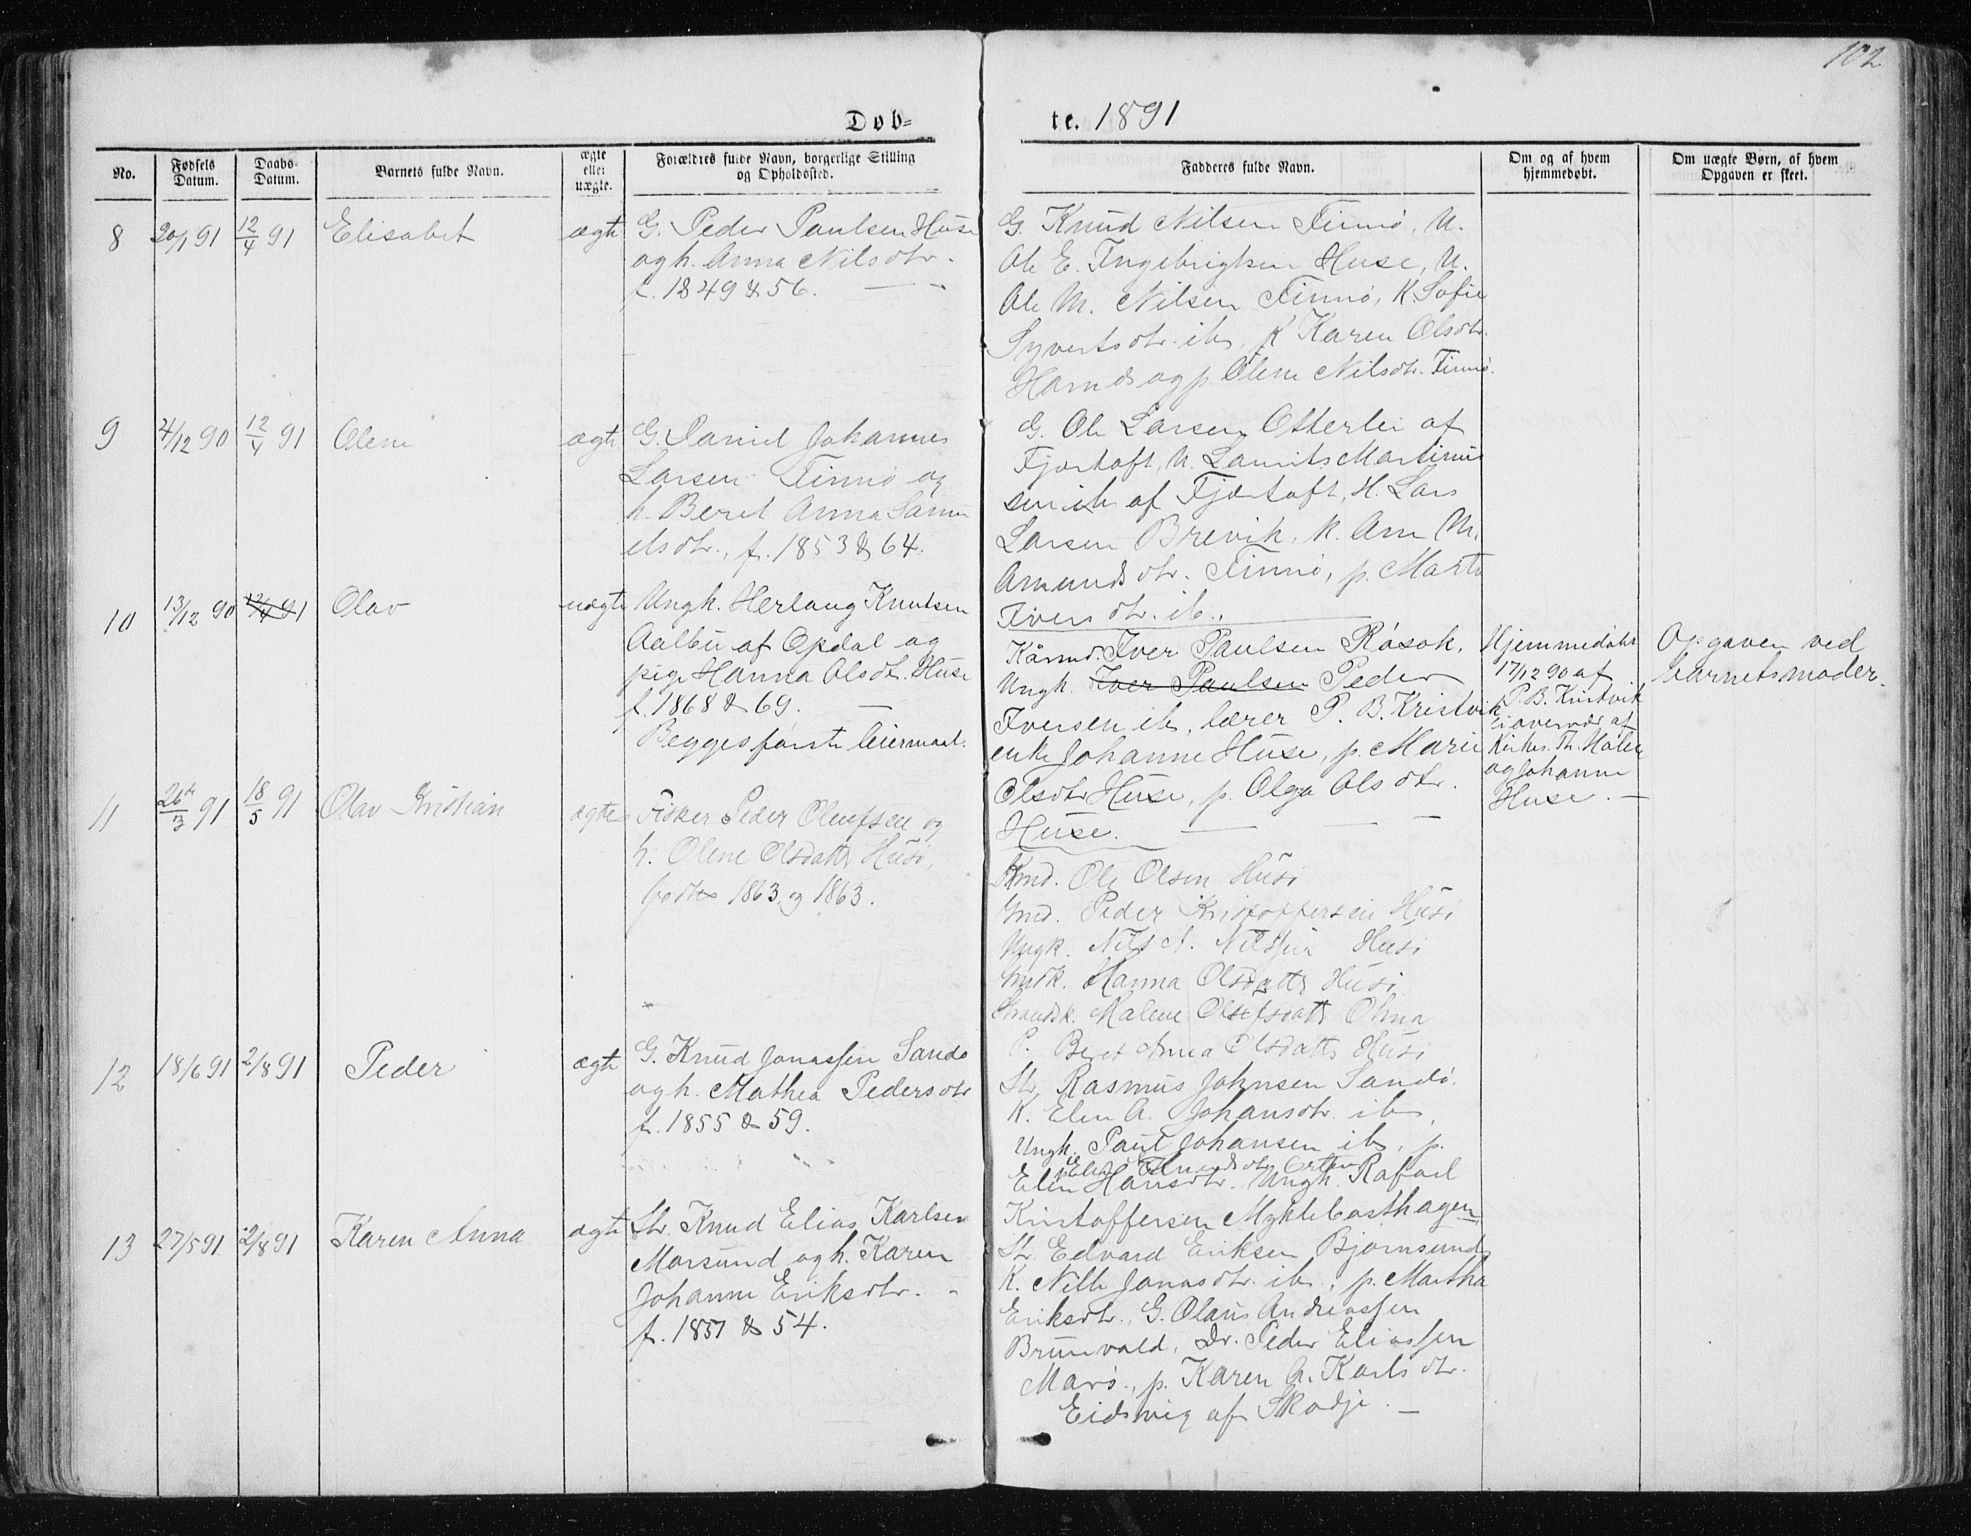 102
Døb=
te. 1891
No.
Fødsels Datum.
Daabs- Datum.
Barnets fulde Navn.
ægte eller uægte.
Forældres fulde Navn, borgerlige Stilling og Opholdssted.
Fadderes fulde Navn.
Om og af hvem hjemmedøbt.
Om uægte Børn, af hvem Opgaven er skeet.
8
20/1 91
12/4 91
Elisabet
ægte
G. Peder Paulsen Huse
og h. Anna Nilsdtr.
f. 1849 & 56.
G. Knud Nilsen Finnø, U.
Ole E. Ingebrigtsen Huse, U.
Ole M. Nilsen Finnø, K. Sofie
Syvertsdtr. ib, K Karen Olsdtr.
Harnds og p. Olene Nilsdtr. Finnø.
9
4/12 90
12/4 91
Olene
ægte
G. Daniel Johannes
Larsen Finnø og
h. Beret Anna Samu
elsdtr., f. 1853 & 64.
G. Ole Larsen Otterlei af
Fjørtoft, U. Laurits Martinus
sen ib af Fjørtoft, H. Lars
Larsen Brevik, K. Ane M.
Amundsdtr. Finnø, p. Marte
Iversdtr. ib.
10
13/12 90
12/4 91
Olav
uægte
Ungk. Herlaug Knutsen
Aalbu af Opdal og
pige Hanna Olsdtr. Huse
f. 1868 & 69.
Begges første leiermaal.
Kårmd. Iver Paulsen Røsok,
Ungk. Iver Paulsen Peder
Iversen ib, lærer P. B. Kristvik
enke Johanne Huse, p. Marie
Olsdtr Huse, p. Olga Olsdtr.
Huse.
Hjemmedøbt
17/12 90 af
P. B. Kristvik
i overvær af
Kirkes. Th. Holen
og Johanne
Huse.
Opgaven ved
barnets moder.
11
26de/3 91
18/5 91
Olav Kristian
ægte
Fisker Peder Olufsen og
h. Olene Olsdatter Husø,
fødte 1863 og 1863.
Kmd. Ole Olsen Husø
Gmd. Peder Kristoffersen Husø
Ungk. Nils A. Nilssen Husø
Gmdk. Hanna Olsdatter Husø
Strandsk. Malene Olufsdatter Ohna
P. Beret Anna Olsdatter Husø
12
18/6 91
2/8 91
Peder
ægte
G. Knud Jonassen Sandø
og h. Mathea Pedersdtr
f. 1855 & 59.
Str. Rasmus Johnsen Sandø.
K. Elen A. Johansdtr. ib,
Ungk. Paul Johansen ib, p.
Elen Hansdtr. Ungk. Rafael
Kristoffersen Myklebosthagen
13
27/5 91
2/8 91
Karen Anna
ægte
Str. Knud Elias Karlsen
Morsund og h. Karen
Johanne Eriksdtr.
f. 1851 & 54.
Str. Edvard Eriksen Bjørnsund
K. Nille Jonasdtr. ib, p. Martha
Eriksdtr., G. Olaus Andreassen
Brunvold, Dr. Peder Eliassen
Marø., p. Karen A. Karlsdtr.
Eidsvig af Skodje.